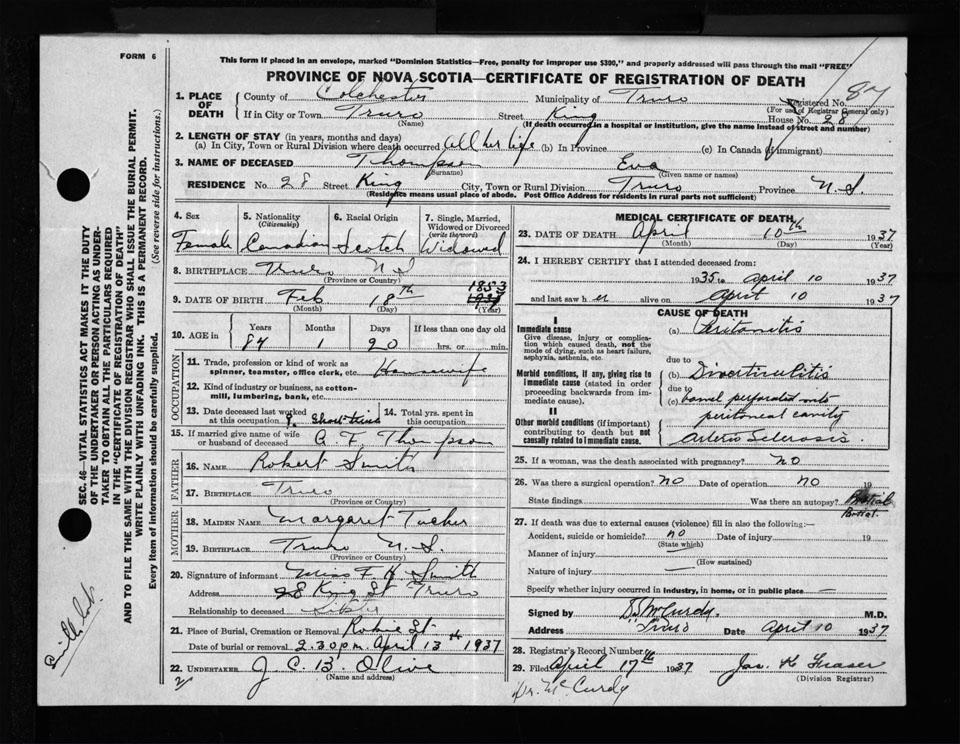 FORM 6
This form if placed in an envelope, marked "Dominion Statistics—Free, penalty for improper use $300," and properly addressed will pass through the mail "FREE"
PROVINCE OF NOVA SCOTIA—CERTIFICATE OF REGISTRATION OF DEATH
87
1. PLACE OF DEATH County of Colchester Municipality of Truro Registered No.
(For use of Registrar General only)
If in City or Town Truro Street King House No. 28
(Name) (If death occurred in a hospital or institution, give the name instead of street and number)
2. LENGTH OF STAY (in years, months and days)
(a) In City, Town or Rural Division where death occurred all her life (b) In Province (c) In Canada (if immigrant)
3. NAME OF DECEASED Thompson Eva
(Surname) (Given name or names)
RESIDENCE No. 28 Street King City, Town or Rural Division Truro Province N.S.
(Residence means usual place of abode. Post Office Address for residents in rural parts not sufficient)
4. Sex 5. Nationality (Citizenship) 6. Racial Origin 7. Single, Married, Widowed or Divorced (write the word)
Female Canadian Scotch Widowed
8. BIRTHPLACE Truro N S
(Province or Country)
1853
9. DATE OF BIRTH Feb 18th
(Month) (Day) (Year)
10. AGE in Years Months Days If less than one day old
84 1 20 hrs. or min.
OCCUPATION
11. Trade, profession or kind of work as spinner, teamster, office clerk, etc. Housewife
12. Kind of industry or business, as cotton-mill, lumbering, bank, etc.
13. Date deceased last worked at this occupation Short time
14. Total yrs. spent in this occupation
15. If married give name of wife or husband of deceased A. F. Thompson
FATHER
16. Name Robert Smith
17. Birthplace Truro
(Province or Country)
MOTHER
18. Maiden Name Margaret Tucker
19. Birthplace Truro N.S.
(Province or Country)
20. Signature of informant Miss F H Smith
Address 28 King St Truro
Relationship to deceased Sister
21. Place of Burial, Cremation or Removal Robie St
Date of burial or removal 2.30 p.m. April 13th 1937
22. UNDERTAKER J. C. B. Olive
(Name and address)
MEDICAL CERTIFICATE OF DEATH
23. DATE OF DEATH April 10th 1937
(Month) (Day) (Year)
24. I HEREBY CERTIFY that I attended deceased from:
1935 to April 10 1937
and last saw her alive on April 10 1937
CAUSE OF DEATH
I
Immediate cause (a) Peritonitis
Give disease, injury or complication which caused death, not the mode of dying, such as heart failure, asphyxia, asthenia, etc.
due to
Morbid conditions, if any, giving rise to immediate cause (stated in order proceeding backwards from immediate cause). (b) Diverticulitis
due to
(c) bowel perforated into
peritoneal cavity
II
Other morbid conditions (if important) contributing to death but not causally related to immediate cause. Arterio Sclerosis
25. If a woman, was the death associated with pregnancy? no
26. Was there a surgical operation? no Date of operation no 19
State findings Was there an autopsy? Partial
Partial
27. If death was due to external causes (violence) fill in also the following:—
Accident, suicide or homicide? no Date of injury 19
(State which)
Manner of injury —
(How sustained)
Nature of injury —
Specify whether injury occurred in industry, in home, or in public place —
Signed by McCurdy M.D.
Address Truro Date April 10 1937
28. Registrar's Record Number
29. Filed April 17th 1937 Jas. K Fraser
(Division Registrar)
Dr. McCurdy
SEC. 46—VITAL STATISTICS ACT MAKES IT THE DUTY
OF THE UNDERTAKER OR PERSON ACTING AS UNDER-
TAKER TO OBTAIN ALL THE PARTICULARS REQUIRED
IN THE "CERTIFICATE OF REGISTRATION OF DEATH"
AND TO FILE THE SAME WITH THE DIVISION REGISTRAR WHO SHALL ISSUE THE BURIAL PERMIT.
WRITE PLAINLY WITH UNFADING INK. THIS IS A PERMANENT RECORD.
Every item of information should be carefully supplied. (See reverse side for instructions.)